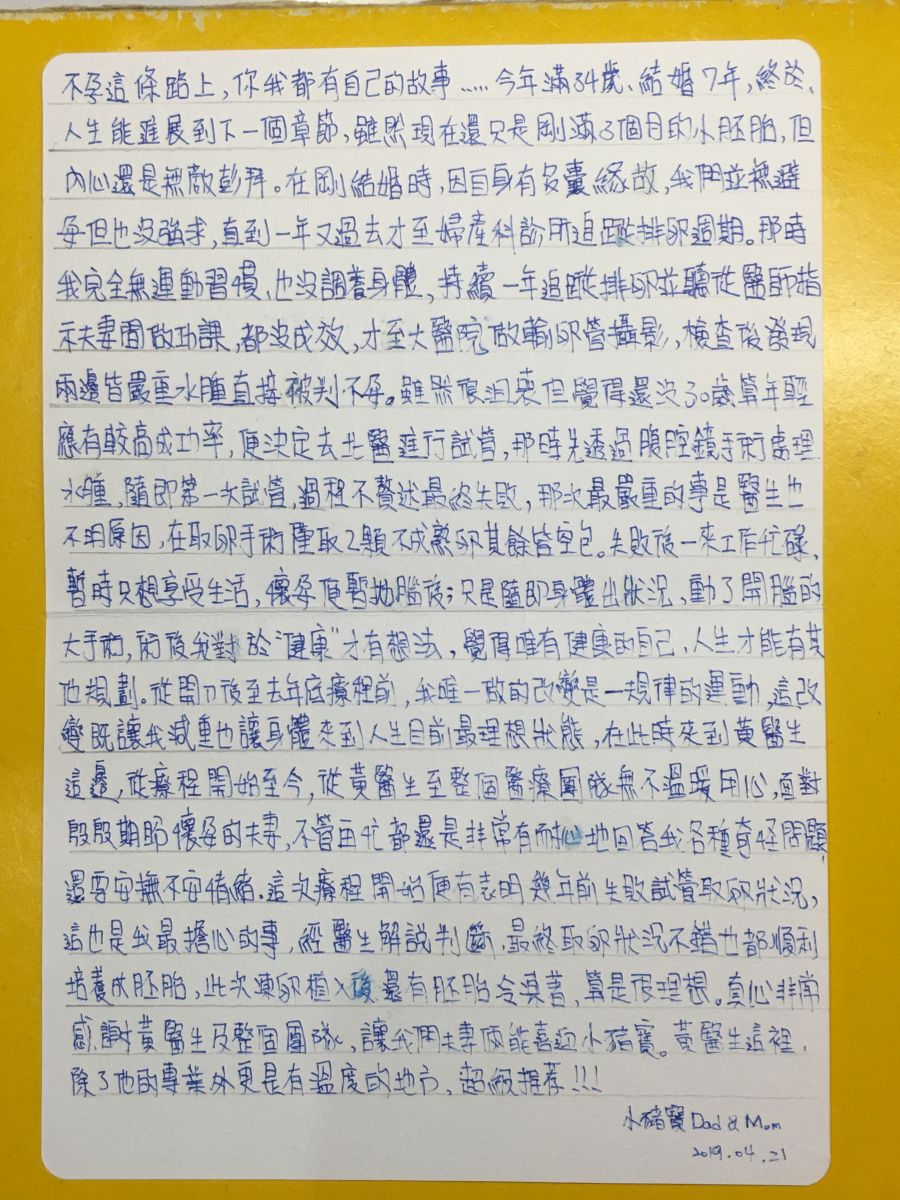 不孕這條路上,你我都有自己的故事.....今年滿34歲、結婚7年,終於、
人生能進展到下一個章節,雖然現在還只是剛滿3個月的小胚胎,但
內心還是無敵彭拜。在剛結婚時,因自身有多囊緣故,我們並無避
孕但也沒強求,直到一年又過去才至婦產科診所追蹤排卵週期。那時
我完全無運動習慣、也沒調養身體,持續一年追蹤排卵並聽從醫師指
示夫妻間做功課,都沒成效,才至大醫院做輸卵管攝影,檢查後發現
兩邊皆嚴重水腫直接被判不孕。雖然很沮喪但覺得還沒30歲算年輕
應有較高成功率,便決定去北醫進行試管,那時先透過腹腔鏡手術處理
水腫,隨即第一次試管,過程不贅述最終失敗,那次最嚴重的事是醫生也
不明原因,在取卵手術僅取2顆不成熟卵其餘皆空包。失敗後一來工作忙碌,
暫時只想享受生活,懷孕便暫拋腦後;只是隨即身體出狀況,動了開腦的
大手術,術後我對於“健康”才有想法,覺得唯有健康的自己,人生才能有其
他規劃。從開刀後至去年底療程前,我唯一做的改變是一規律的運動,這改
變既讓我減重也讓身體來到人生目前最理想狀態,在此時來到黃醫生
這邊,從療程開始至今,從黃醫生至整個醫療團隊無不溫暖用心,面對
殷殷期盼懷孕的夫妻,不管再忙都還是非常有耐心地回答我各種奇怪問題,
還要安撫不安情緒.這次療程開始便有表明幾年前失敗試管取卵狀況,
這也是我最擔心的事,經醫生解說判斷,最終取卵狀況不錯也都順利
培養成胚胎,此次凍卵植入後還有胚胎冷凍著,算是很理想。真心非常
感謝黃醫生及整個團隊,讓我們夫妻倆能喜迎小豬寶。黃醫生這裡,
除了他的專業外更是有溫度的地方,超級推荐!!!
小豬寶Dad & Mom
2019.04.21